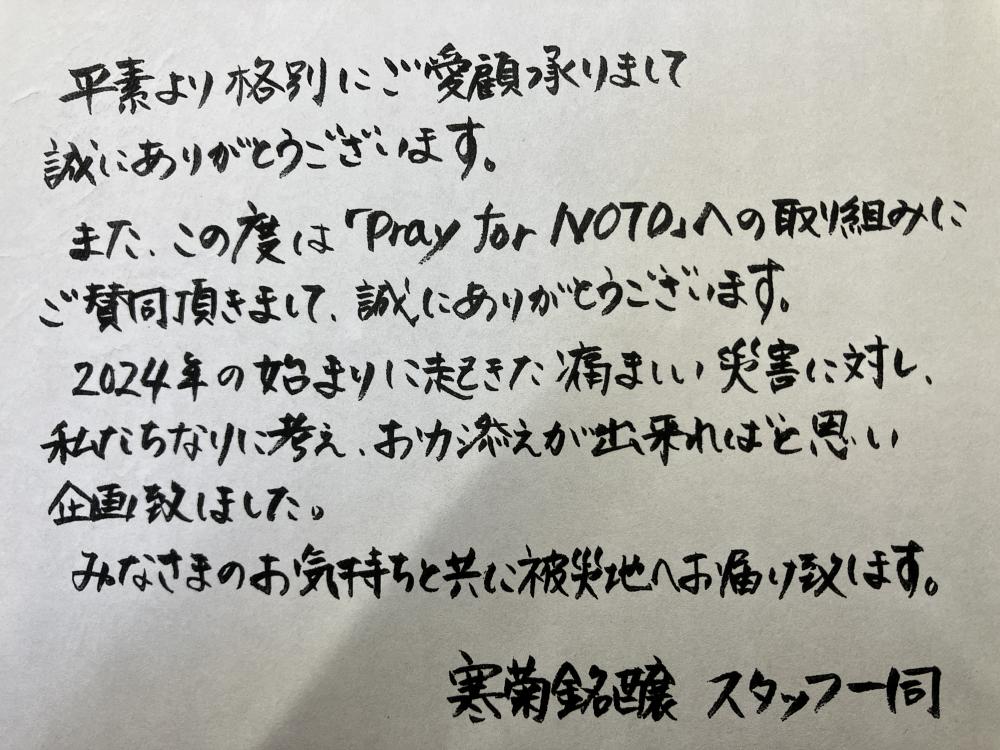 平素より格別にご愛顧承りまして
誠にありがとうございます。
また、この度は「Pray for NOTO」への取り組みに
ご賛同頂きまして、誠にありがとうございます。
2024年の始まりに起きた痛ましい災害に対し、
私たちなりに考え、お力添えが出来ればと思い
企画致しました。
みなさまのお気持ちと共に被災地へお届け致します。
寒菊銘醸 スタッフ一同